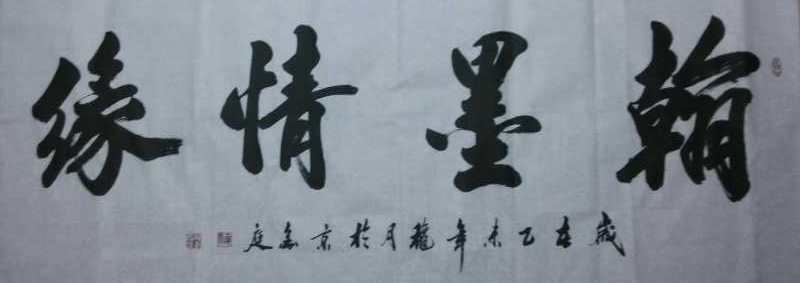 翰墨情缘
岁在乙未年龙月於京
庭